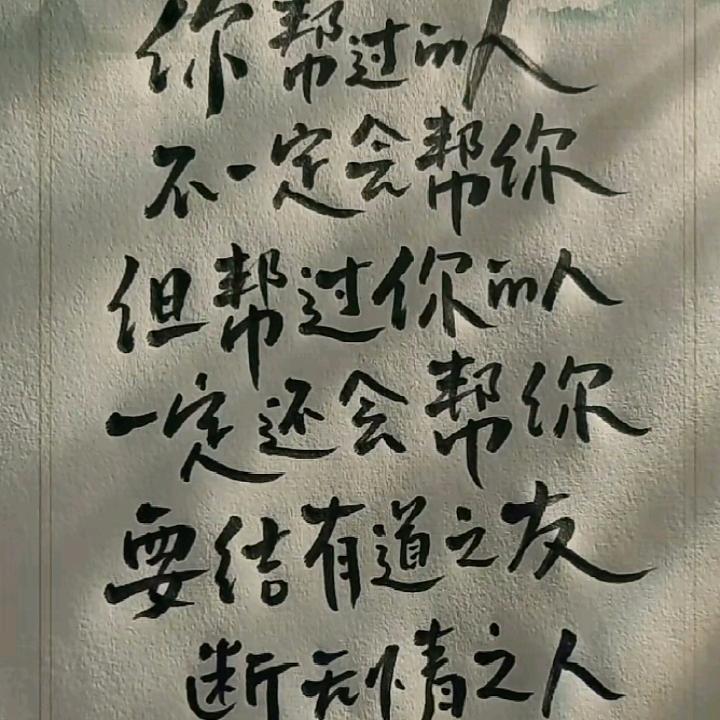 你帮过的人
不一定会帮你
但帮过你的人
一定还会帮你
要结有道之友
断无情之人